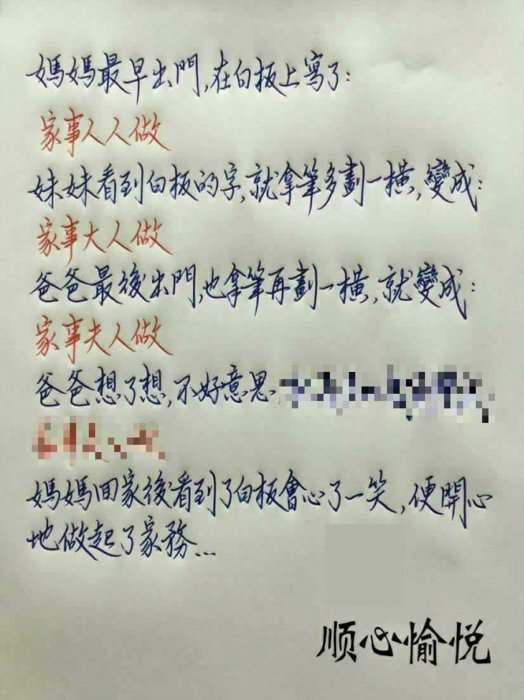 媽媽最早出門,在白板上寫了:
家事人人做
妹妹看到白板的字,就拿筆多劃一橫,變成:
家事大人做
爸爸最後出門,也拿筆再劃一橫,就變成:
家事夫人做
爸爸想了想,不好意思,
媽媽回家後看到了白板會心了一笑,便開心
地做起了家務...
顺心愉悦